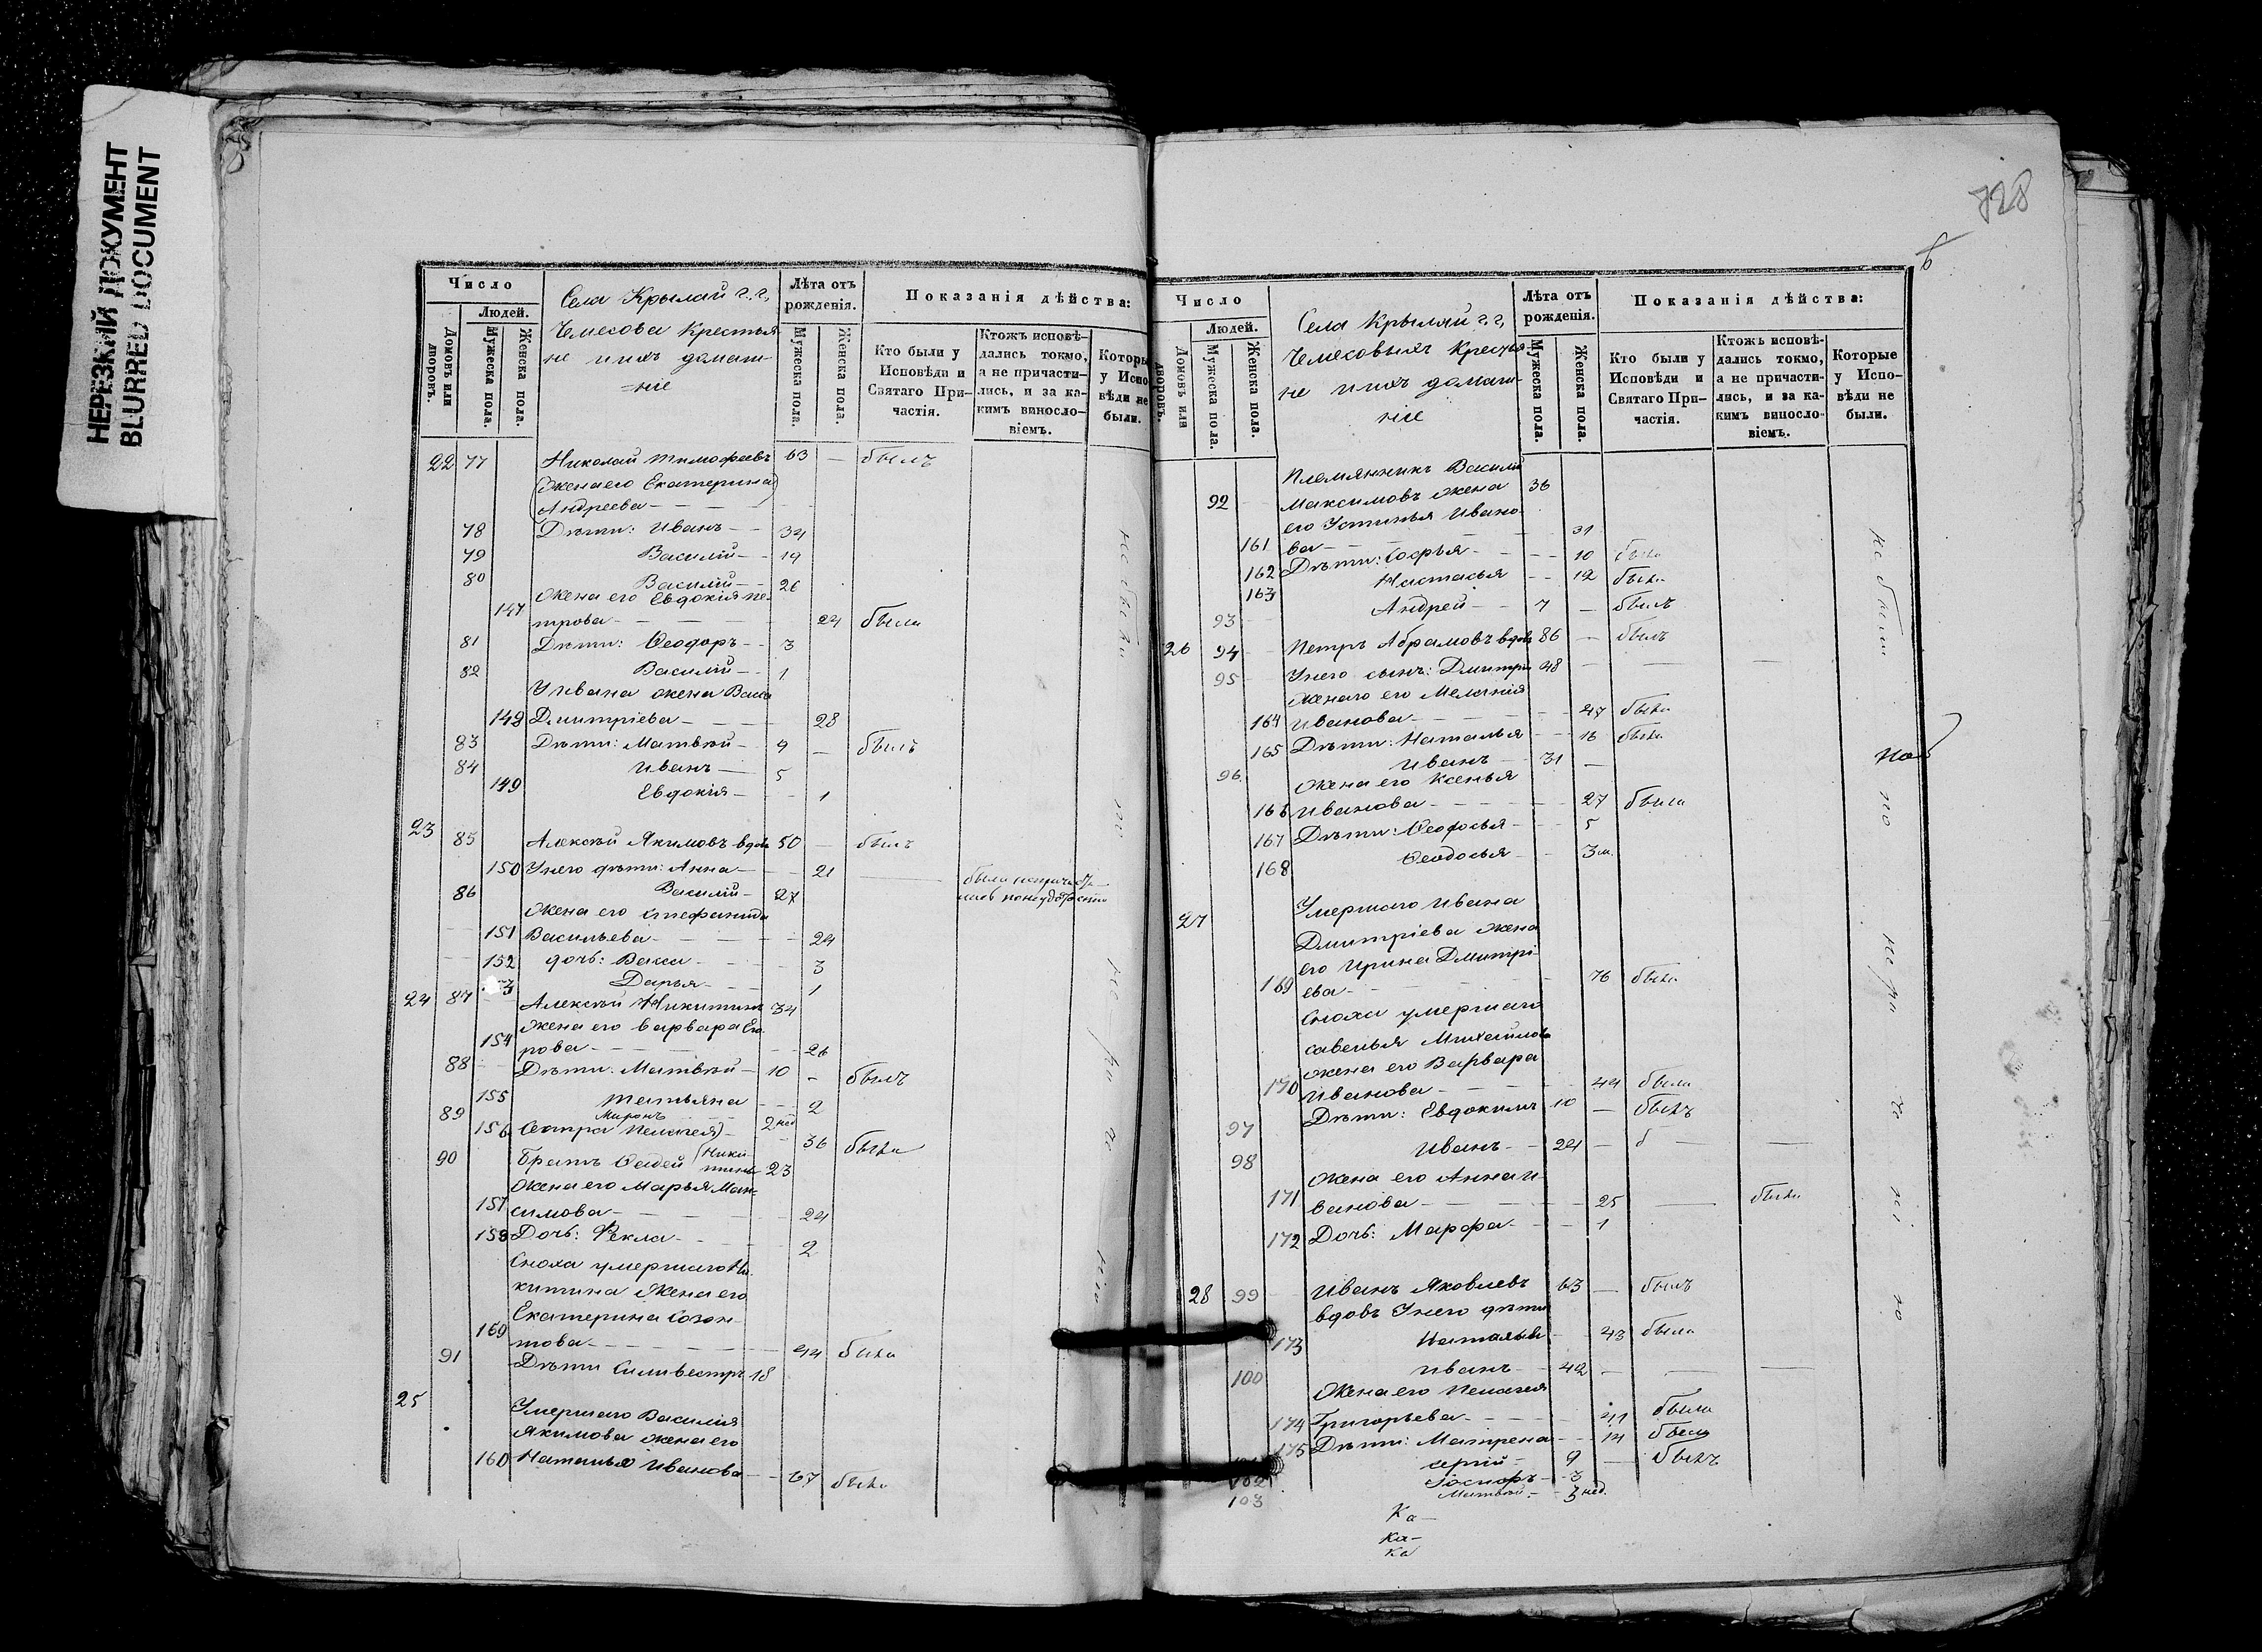 НЕРЕЗКИЙ ДОКУМЕНТ
BLURRED DOCUMENT
Число
Людей.
Домовъ или дворовъ.
Мужеска пола.
Женска пола.
Села Крылай г.г.
Чемесова Крестья
не ихъ домаш-
=ніе
Лѣта отъ рожденія.
Мужеска пола.
Женска пола.
Показанія дѣйства:
Кто были у Исповѣди и Святаго При-частія.
Ктожъ исповѣ-дались токмо, а не причасти-лись, и за ка-кимъ винослов-віемъ.
Которы у Испо-вѣди не были.
22 77 Николай Тимофеевъ 63 — былъ
Жена его Екатерина
Андреева — — —
78 Дѣти: Иванъ — 34
79 Василій — 19
80 Василій — 26
Жена его Евдокія Пе-
147 трова — 24 была
81 Дѣти: Ѳеодоръ — 3
82 Василій — 1
У Ивана жена Васса
148 Дмитріева — 28
83 Дѣти: Матвѣй — 9 — былъ
84 Иванъ — 5
149 Евдокія — 1
23 85 Алексѣй Якимовъ вдовъ 50 — былъ
150 У него дѣти: Анна — 21 —
86 Василій — 27
Жена его Стефанида
151 Васильева — 24
152 дочь: Васса — 3
Дарья — 1
24 87 Алексѣй Никитинъ 34
жена его Варвара Его
154 рова — 26
88 Дѣти: Матвѣй — 10 — былъ
155 Татьяна — 2
89 Миронъ 2 нед
156 Сестра Пелагея — 36 была
90 Братъ Ѳадей Ники-
тинъ 23
Жена его Марья Мак-
157 симова — 24
158 Дочь: Ѳекла — 2
Сноха умершаго Ни-
китина Жена его
Екатерина Созон-
169 това — 44 была
91 Дѣти Сильвестръ 18
25 Умершаго Василія
Якимова жена его
160 Наталья Иванова — 67 была
728
Число
Людей.
Домовъ или дворовъ.
Мужеска пола.
Женска пола.
Села Крылай г.г.
Чемесовыхъ Крестья
не ихъ домаш-
ніе
Лѣта отъ рожденія.
Мужеска пола.
Женска пола.
Показанія дѣйства:
Кто были у Исповѣди и Святаго При-частія.
Ктожъ исповѣ-дались токмо, а не причасти-лись, и за ка-кимъ винословіемъ.
Которые у Испо-вѣди не были.
Племянникъ Василій
92 Максимовъ жена 36
его Устинья Ивано
161 ва — 31
162 Дѣти: Софья — 10 была
163 Настасья — 12 была
93 Андрей — 7 — былъ
26 94 Петръ Абрамовъ вдовъ 86 — былъ
95 У него сынъ: Дмитрій 48 — — —
жена его Меланія
164 Иванова — 47 была
165 Дѣти: Наталья — 16 была
96 Иванъ — 31 —
Жена его Ксенья
166 Иванова — 27 была
167 Дѣти: Ѳеодосья — 5
168 Ѳеодосья — 3 м.
27 Умершаго Ивана
Дмитріева жена
его Ирина Дмитрі-
169 ева — 76 была
Сноха умершаго
Савелья Михайлова
жена его Варвара
170 Иванова — 44 была
97 Дѣти: Евдокимъ 10 — былъ
98 Иванъ — 24 —
Жена его Анна И-
171 ванова — 25 — была
172 Дочь: Марфа — 1
28 99 Иванъ Яковлевъ 63 — былъ
вдовъ У него дѣти
173 Наталья — 43 была
100 Иванъ — 42 — — —
Жена его Пелагея
174 Григорьева — 41 была
175 Дѣти: Матрена — 14 была
Сергій — 9 — былъ
102 Іосифъ — 3
103 Матвѣй — 3 нед.
Ка—
ка—
ка